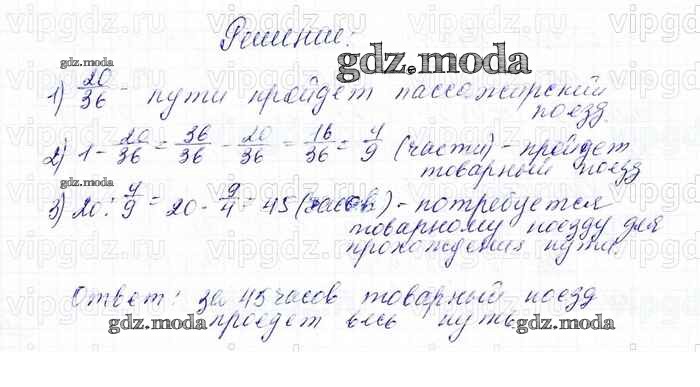 Решение:
gdz.moda
1) 20/36 - пути пройдет пассажирский
поезд.
2) 1 - 20/36 = 36/36 - 20/36 = 16/36 = 4/9 (части) - пройдет
товарный поезд
3) 20 : 4/9 = 20 · 9/4 = 45 (часов) - потребуется
товарному поезду для
прохождения пути.
gdz.moda
Ответ: за 45 часов товарный поезд
проедет весь путь
gdz.moda
gdz.moda